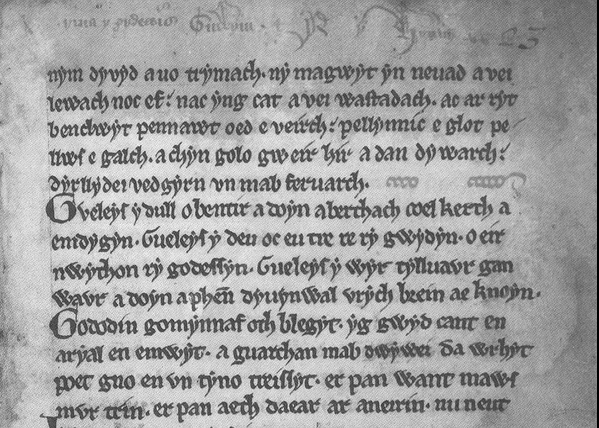 nym dyvyd a uo trymach. ny magwyt yn neuad a vei
lewach noc ef: nac yng cat a vei wastadach. ac ar ryt
benclwyt pennawt oed e veirch: pellynnic e glot pe
llws e galch. a chyn golo gweir hir a dan dywarch:
dyrllydei vedgyrn vn mab feruarch.
Gveleys y dull o bentir a doyn aberthach coel kerth a
emdygyn. Gueleys y deu oc eu tre re ry gwydyn. o eir
nwython ry godessyn. Gueleys y wyr tylluavr gan
wavr a doyn a phen dyuynwal vrych brein ae knoyn.
Gododin gomynnaf oth blegyt. yg gwyd cant en
aryal en emwyt. a guarchan mab dwywei da wrhyt
poet gno en vn tyno treissyt. er pan want maws
mvr trin. er pan aeth daear ar aneirin. nu neut